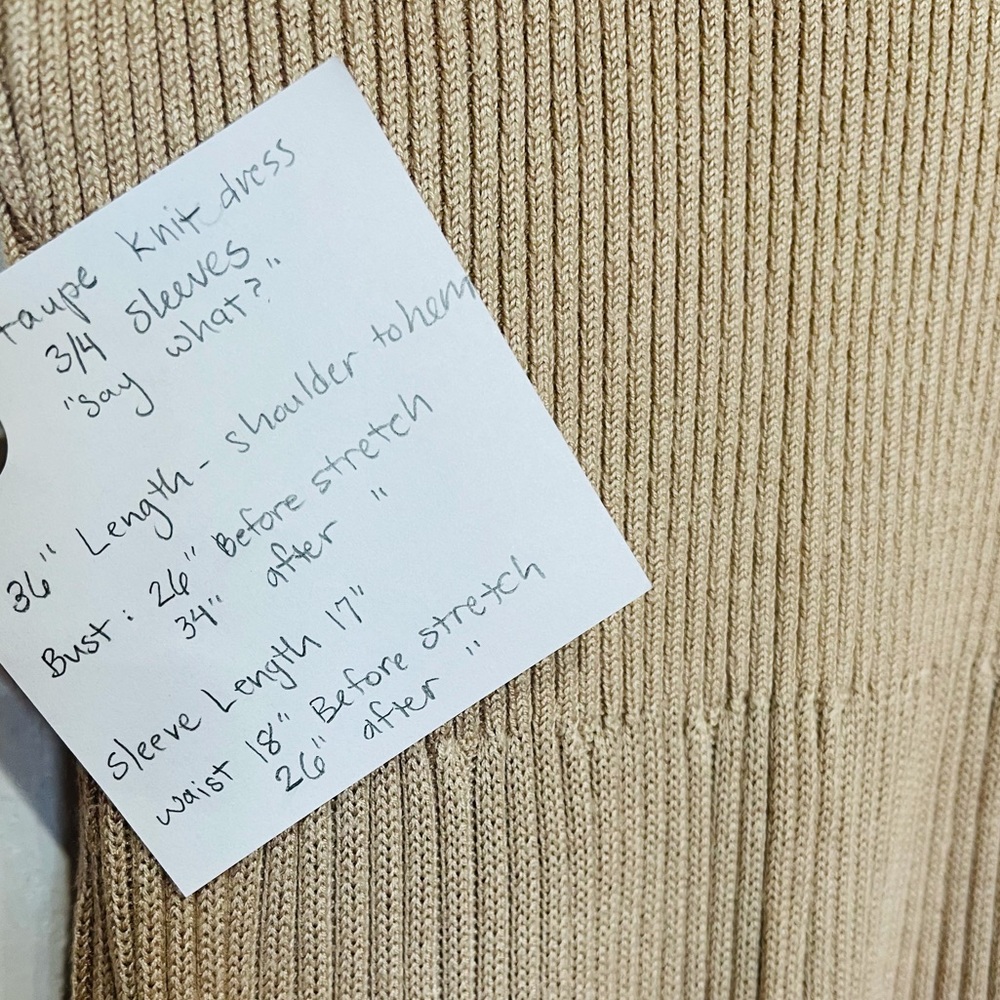 taupe knit dress
3/4 sleeves
"say what?"
36" Length - shoulder to hem
Bust: 26" Before stretch
34" after "
Sleeve Length 17"
waist 18" Before stretch
26" after "